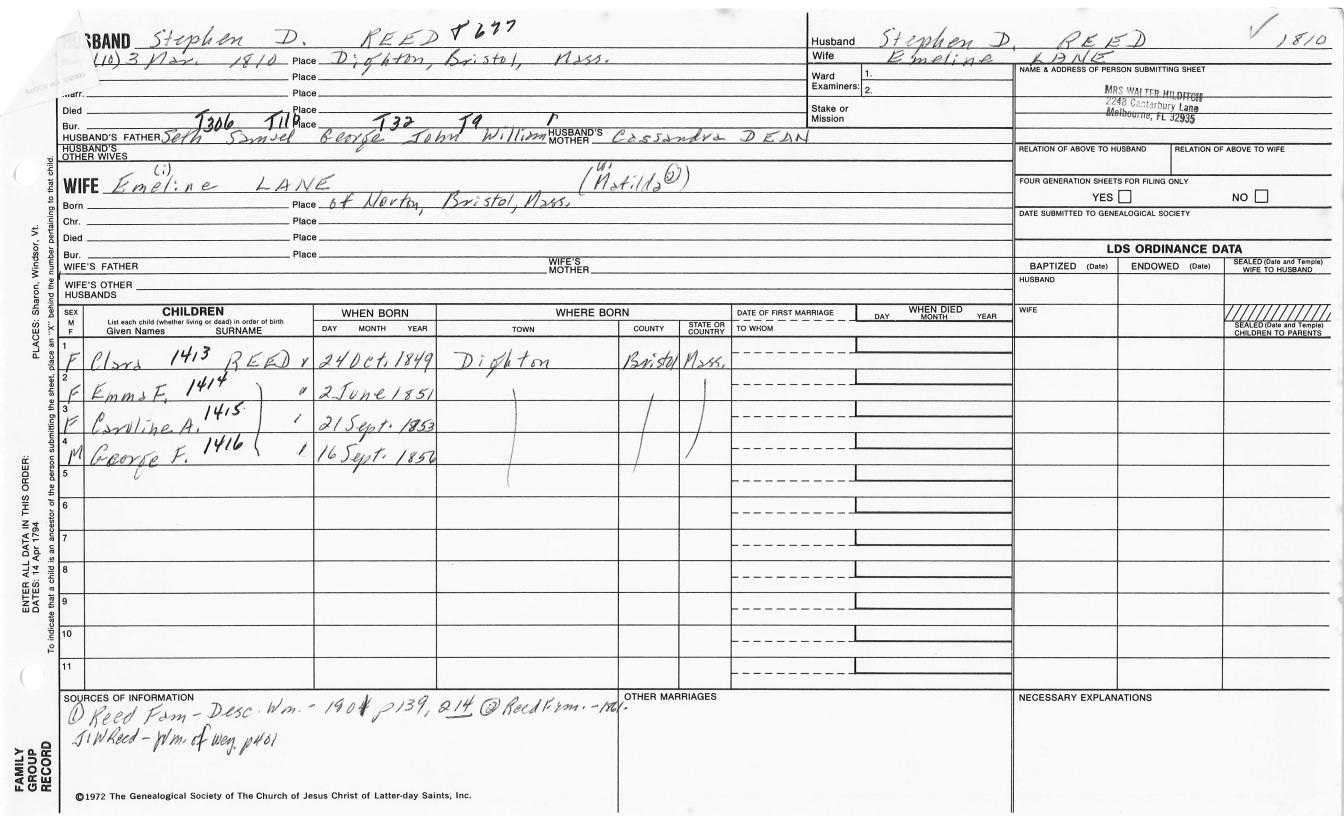 HUSBAND Stephen D. REED 8677
(10) 3 Mar. 1810 Place Dighton, Bristol, Mass.
Place
Marr. Place
Died Place
Bur. T306 T118 Place T32 T9
HUSBAND'S FATHER Seth Samuel George John William HUSBAND'S MOTHER Cassandra DEAN
HUSBAND'S OTHER WIVES
Husband Stephen D. REED 1810
Wife Emeline LANE
Ward Examiners: 1. 2.
Stake or Mission
NAME & ADDRESS OF PERSON SUBMITTING SHEET
MRS WALTER HILDITCH
2248 Canterbury Lane
Melbourne, FL 32935
RELATION OF ABOVE TO HUSBAND RELATION OF ABOVE TO WIFE
FOUR GENERATION SHEETS FOR FILING ONLY
YES NO
DATE SUBMITTED TO GENEALOGICAL SOCIETY
WIFE Emeline (i) LANE (Matilda ②)
Born Place of Norton, Bristol, Mass.
Chr. Place
Died Place
Bur. Place
WIFE'S FATHER WIFE'S MOTHER
WIFE'S OTHER HUSBANDS
LDS ORDINANCE DATA
BAPTIZED (Date) ENDOWED (Date) SEALED (Date and Temple) WIFE TO HUSBAND
HUSBAND
WIFE
SEALED (Date and Temple) CHILDREN TO PARENTS
SEX M F
CHILDREN
List each child (whether living or dead) in order of birth
Given Names SURNAME
WHEN BORN
DAY MONTH YEAR
WHERE BORN
TOWN COUNTY STATE OR COUNTRY
DATE OF FIRST MARRIAGE
TO WHOM
WHEN DIED
DAY MONTH YEAR
1 F Clara 1413 REED 24 Oct. 1849 Dighton Bristol Mass.
2 F Emma F. 1414 " 2 June 1851
3 F Caroline A. 1415 21 Sept. 1853
4 M George F. 1416 16 Sept. 1856
5
6
7
8
9
10
11
SOURCES OF INFORMATION
① Reed Fam - Desc. Wm. - 1901 p139, 214 ② Reed Firm.
JW Reed - Wm. of Wey. p401
OTHER MARRIAGES
NECESSARY EXPLANATIONS
©1972 The Genealogical Society of The Church of Jesus Christ of Latter-day Saints, Inc.
FAMILY GROUP RECORD
ENTER ALL DATA IN THIS ORDER:
DATES: 14 Apr 1794
PLACES: Sharon, Windsor, Vt.
To indicate that a child is an ancestor of the person submitting the sheet, place an "X" behind the number pertaining to that child.